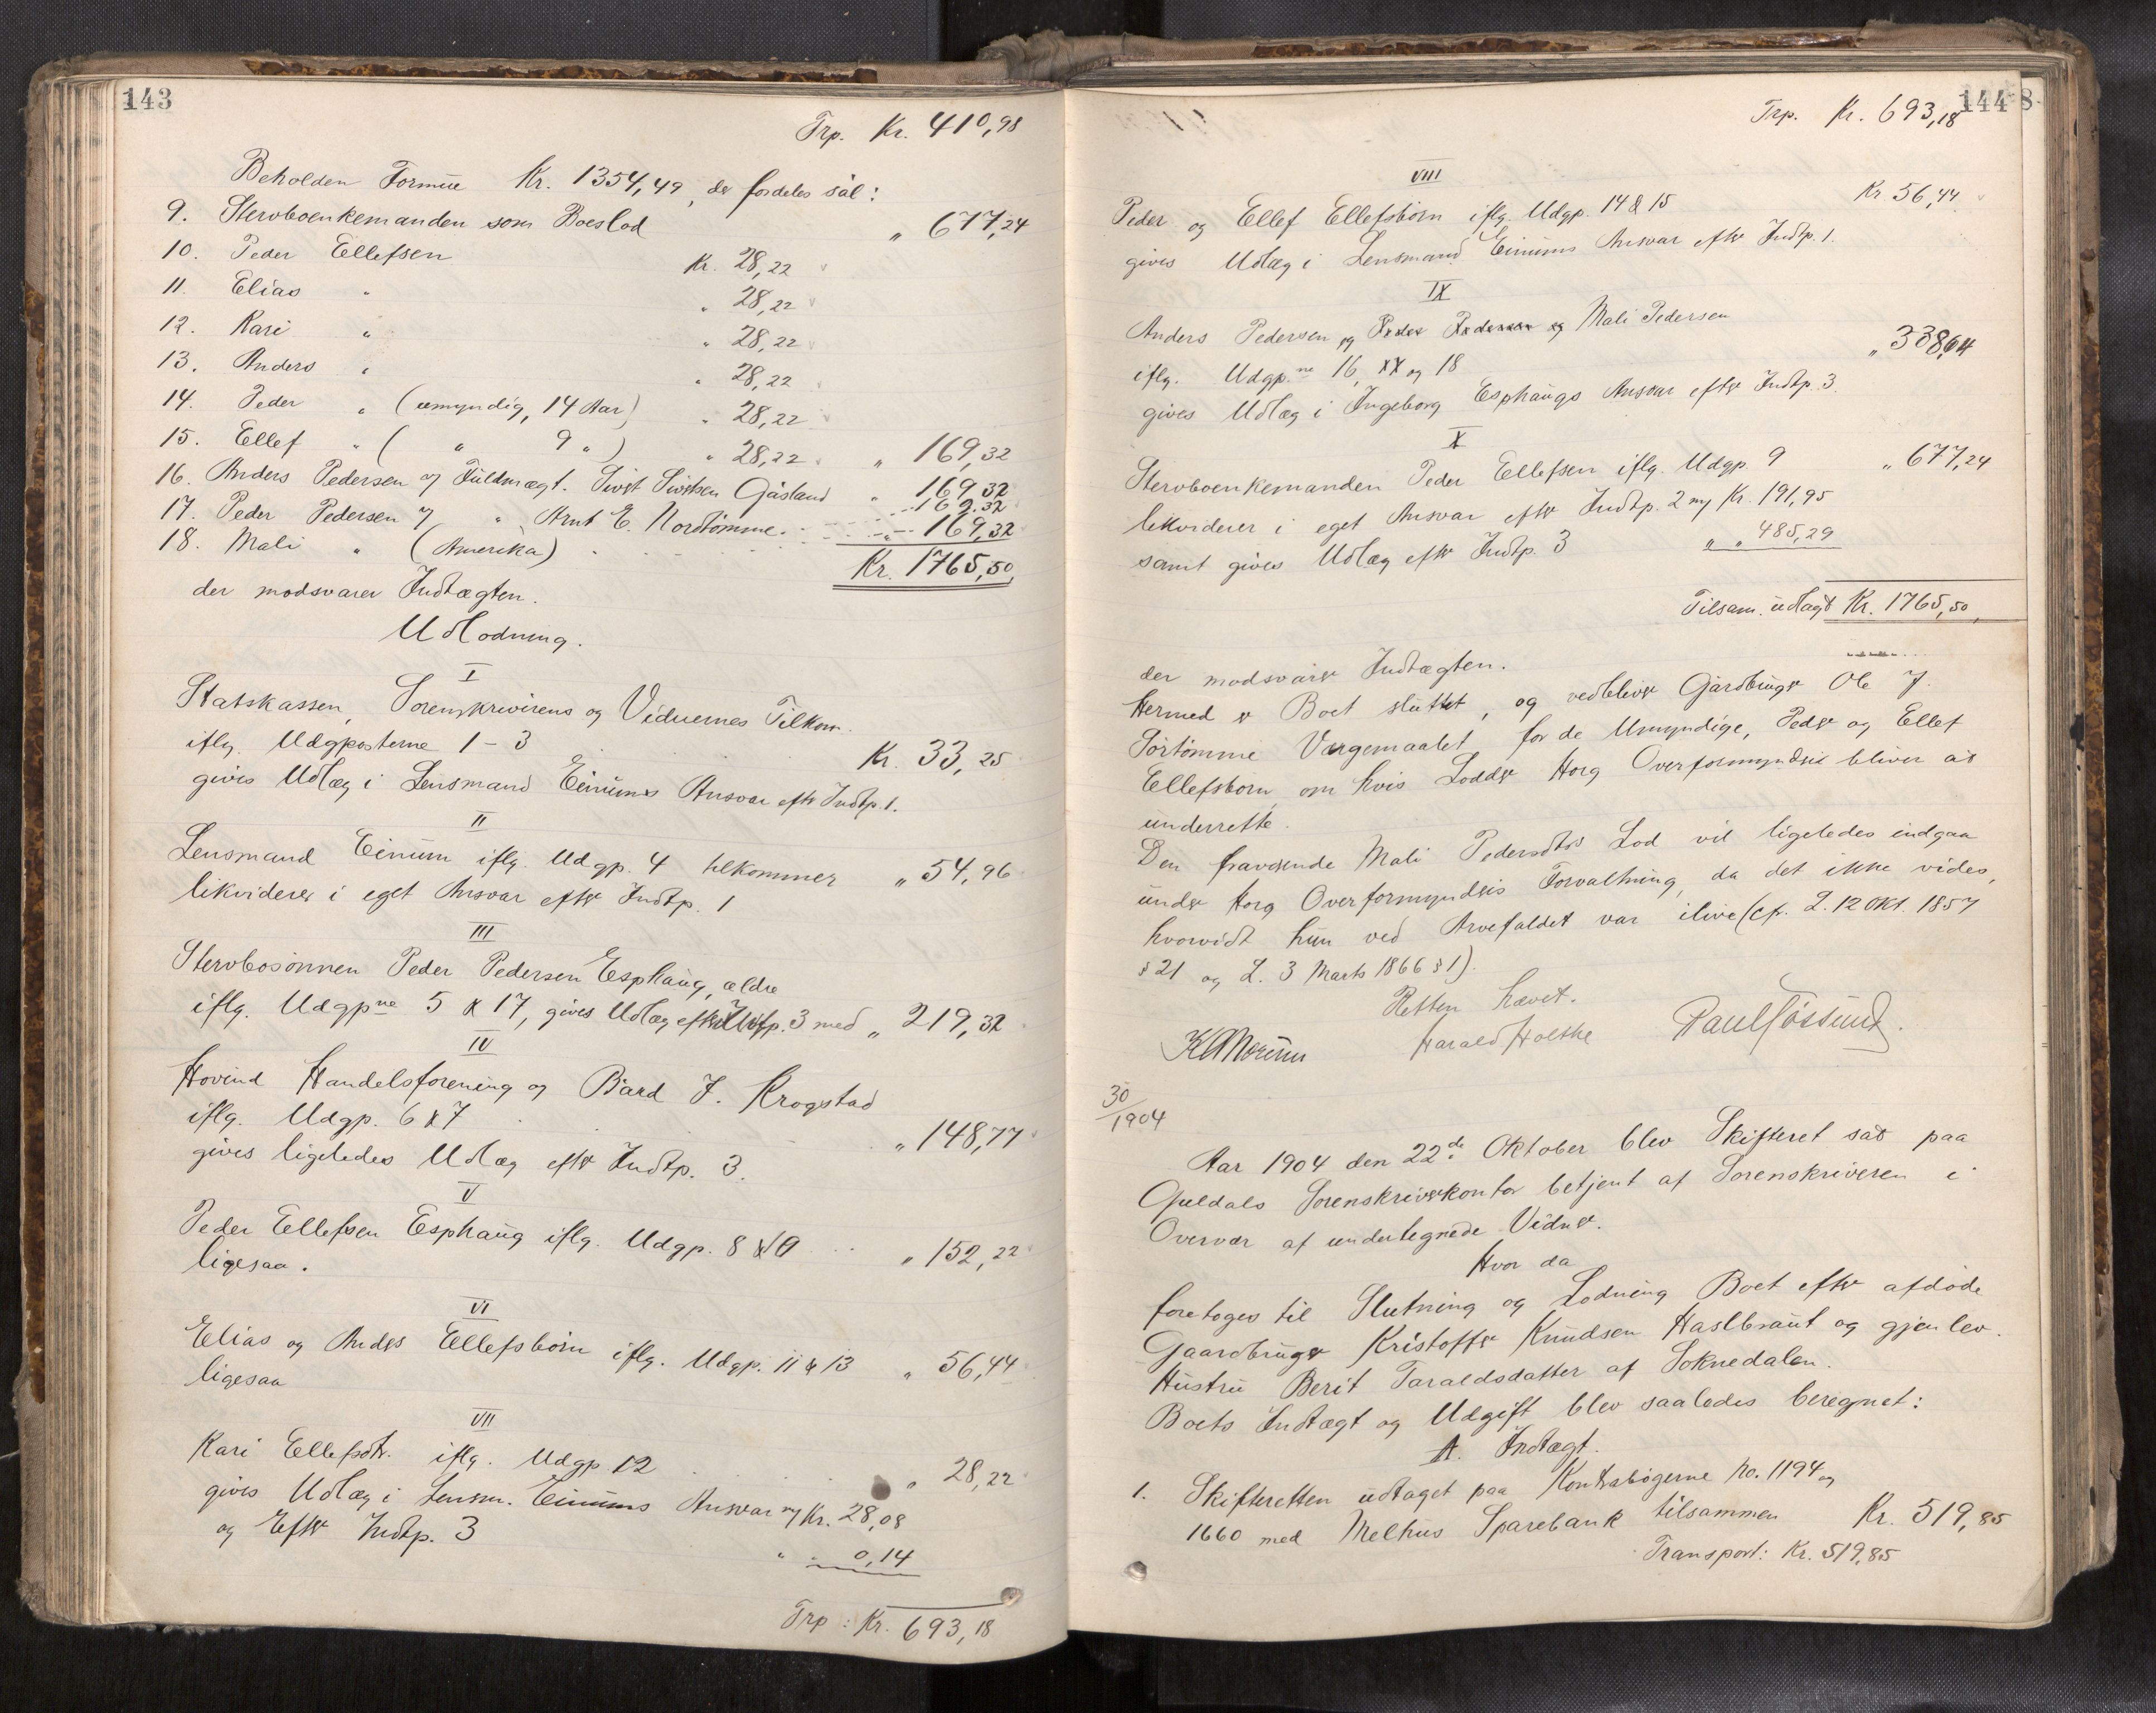 143
Trp. Kr. 410,98
Beholden Formue Kr. 1354,49, der fordeles sål:
9. Stervboenkemanden som Boeslod " 677,24
10. Peder Ellefsen Kr. 28,22
11. Elias " " 28,22
12. Kari " " 28,22
13. Anders " " 28,22
14. Peder " (umyndig, 14 Aar) " 28,22
15. Ellef " ( " 9 " ) " 28,22 " 169,32
16. Anders Pedersen v/ Fuldmægt. Sivert Sivertsen Gåsland " 169,32
17. Peder Pedersen v/ " Arnt E. Nordtømme " 169,32
18. Mali " (Amerika) " 169,32
Kr. 1765,50,
der modsvarer Indtægten.
Udlodning.
I
Statskassen, Sorenskriverens og Vidnernes Tilkom.
iflg. Udgposterne 1-3 Kr. 33,25
gives Udlæg i Lensmand Einums Ansvar efter Indtp. 1.
II
Lensmand Einum iflg. Udgp. 4 tilkommer " 54,96
likviderer i eget Ansvar efter Indtp. 1
III
Stervbosønnen Peder Pedersen Esphaug, ældre
iflg. Udgpne 5 & 17, gives Udlæg efter Indtp. 3 med " 219,32
IV
Hovind Handelsforening og Bård J. Krogstad
iflg. Udgp. 6 & 7 " 148,77
gives ligeledes Udlæg efter Indtp. 3.
V
Peder Ellefsen Esphaug iflg. Udgp. 8 & 10 " 152,22
ligesaa.
VI
Elias og Anders Ellefsbörn iflg. Udgp. 11 & 13 " 56,44
ligesaa
VII
Kari Ellefsdtr. iflg. Udgp 12 " 28,22
gives Udlæg i Lensm. Einums Ansvar m/ Kr. 28,08
og efter Indtp. 3 " " 0,14
Trp: Kr. 693,18
144 8
Trp. Kr. 693,18
VIII
Peder og Ellef Ellefsbörn iflg. Udgp. 14 & 15 Kr 56,44
gives Udlæg i Lensmand Einums Ansvar efter Indtp. 1.
IX
Anders Pedersen og Peder Pedersen og Mali Pedersen
iflg. Udgp.ne 16, 17 og 18 " 338,64
gives Udlæg i Ingeborg Esphaugs Ansvar efter Indtp. 3.
X
Stervboenkemanden Peder Ellefsen iflg. Udgp. 9 " 677,24
likviderer i eget Ansvar efter Indtp. 2 m/ Kr. 191,95
samt gives Udlæg efter Indtp. 3 " " 485,29
Tilsam. udlagt Kr. 1765,50,
der modsvarer Indtægten.
Hermed er Boet sluttet, og vedbliver Gårdbruger Ole J.
Sörtömme Værgemaalet for de Umyndige, Peder og Ellef
Ellefsbörn, om hvis Lodder Horg Overformynderi bliver at
underrette.
Den fraværende Mali Pedersdtrs Lod vil ligeledes indgaa
under Horg Overformynderis Forvaltning, da det ikke vides,
hvorvidt hun ved Arvefaldet var ilive (cfr. L. 12 Okt. 1857
§ 21 og L. 3 Marts 1866 § 1).
Retten hævet.
Harald Holthe
30/1904
Aar 1904 den 22de Oktober blev Skifteret sat paa
Guldals Sorenskriverkontor betjent af Sorenskriveren i
Overvær af undertegnede Vidner.
Hvor da
foretoges til Slutning og Lodning Boet efter afdøde
Gaardbruger Kristoffer Knudsen Haslbraut og gjenlev.
Hustru Berit Taraldsdatter af Soknedalen.
Boets Indtægt og Udgift blev saaledes beregnet:
A. Indtægt.
1. Skifteretten udtaget paa Kontrabøgerne No. 1194 og
1660 med Melhus Sparebank tilsammen Kr. 519,85
Transport: Kr. 519,85